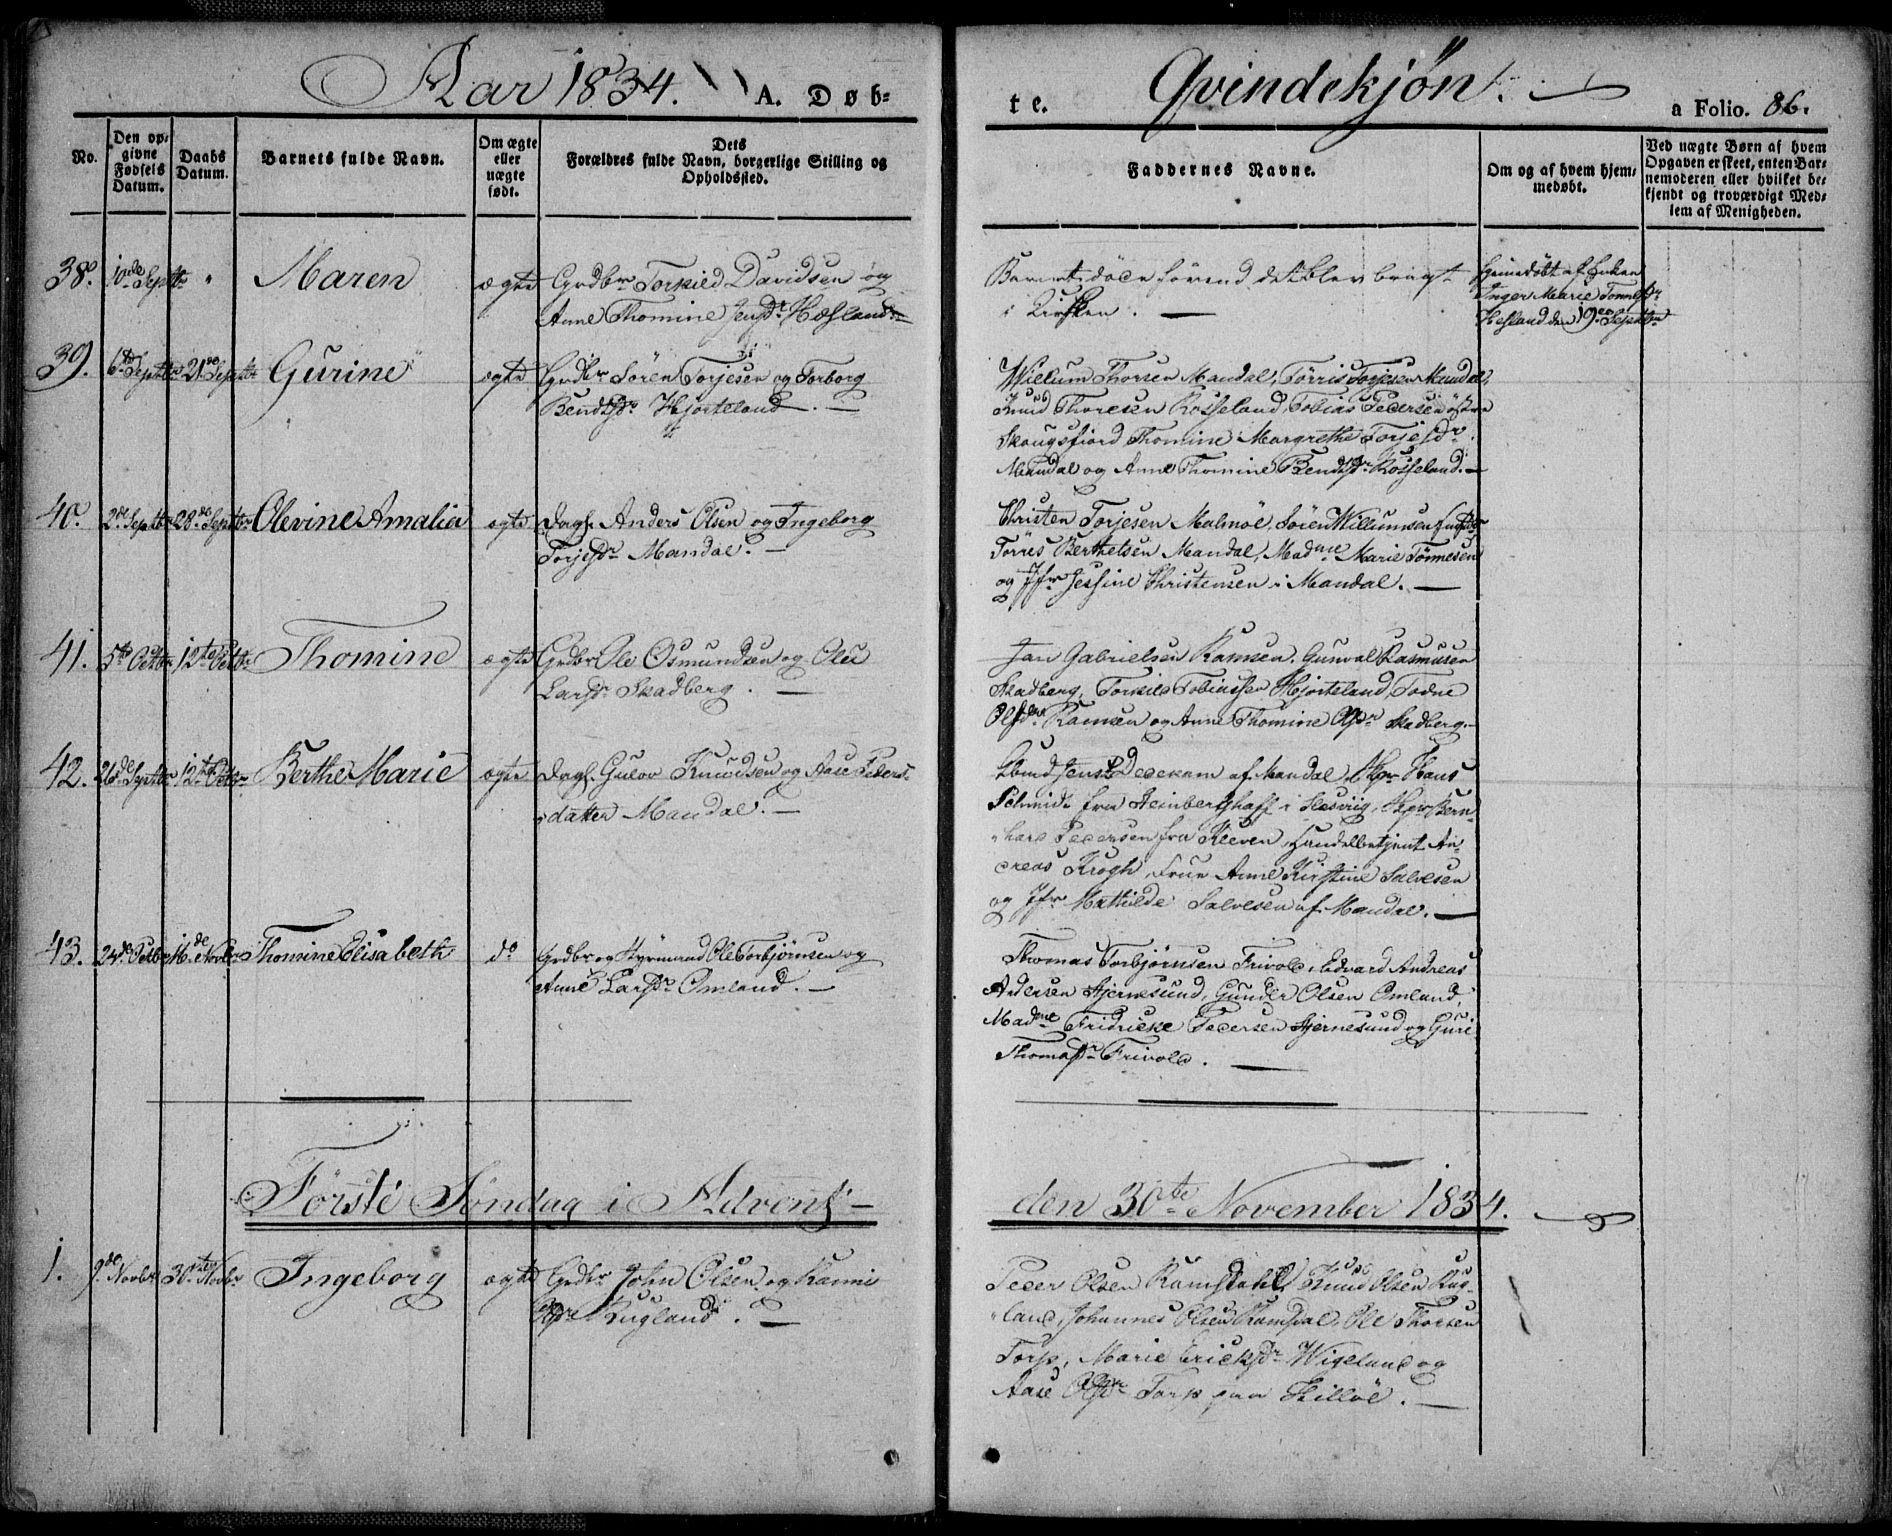 Aar 1834. A. Døb-
te. Qvindekjøn. a Folio. 86.
No.
Den opgivne Fødsels Datum.
Daabs Datum.
Barnets fulde Navn.
Om ægte eller uægte født.
Dets Forældres fulde Navn, borgerlige Stilling og Opholdssted.
Faddernes Navne.
Om og af hvem hjemmedøbt.
Ved uægte Børn af hvem Opgaven er skeet, enten Barnemoderen eller hvilket bekjendt og troværdigt Medlem af Menigheden.
38. 10de Septbr " Maren ægte Grdbr Torkild Davidsen og
Anne Thomine Jensdr Hæsland
Barnet døde førend det blev bragt
i Kirken.
Hjemedøbt af Enken
Inger Marie Tønnesdr
Hesland den 19de Septbr
39. 6te Septbr 21de Septbr Gurine ægte Grdbr Sören Torjesen og Torborg
Bendtsdr Hjorteland.
Willum Thorsen Mandal, Törris Torjesen Mandal,
Knud Thoresen Rosseland, Tobias Pedersen östre
Skougsfiord Thomine Margrethe Torjesdr
Mandal og Anne Thomine Bendtsdr Rosseland.
40. 2de Septbr 28de Septbr Olevine Amalia ægte Dagl. Anders Olsen og Ingeborg
Torjesdr Mandal.
Christen Torjesen Malmöe, Sören Willumsen
Törres Berthelsen Mandal, Madme Marie Tönnesen
og Jfr Jessine Christensen i Mandal.
41. 5te Octbr 12te Octbr Thomine ægte Grdbr Ole Osmundsen og Olea
Larsdr Skadberg.
Jan Gabrielsen Ramsen, Gunval Rasmusen
Skadberg, Torkild Tobiassen Hjorteland, Todne
Olsdr Ramsen og Anne Thomine Olsdr Skadberg.
42. 26de Septbr 12te Octbr Berthe Marie ægte Dagl. Gulov Knudsen og Aase Peders-
datter Mandal.
Gbmd Jens Dedekam af Mandal, Skpr Hans
Schmidt fra Steinberghaff i Slesviig, Skpr Bern-
hard Pedersen fra Kleven, Handelbetjent An-
dreas Krogh, Frue Anne Kirstine Salvesen
og Jfr Mathilde Salvesen af Mandal.
43. 24de Octbr 16de Novbr Thomine Elisabeth do Grdbr og Styrmand Ole Torbjörnsen og
Anne Larsdr Omland.
Thomas Torbjörnsen Frivold, Edvard Andreas
Andersen Hjernesund, Gunder Olsen Omland,
Madme Fridricke Pedersen Hjernesund og Guri
Thomasdr Frivold.
Förste Söndag i Advent
den 30te November 1834.
1. 9de Novbr 30te Novbr Ingeborg ægte Grdbr John Olsen og Ranni
Olsdr Rugland.
Peder Olsen Ramsdahl, Knud Olsen Rug-
land, Johannes Olsen Ramsdal, Ole Thorsen
Torp, Marie Ericksdr Wigeland og
Aase Olsdr Torp paa Skillöe.